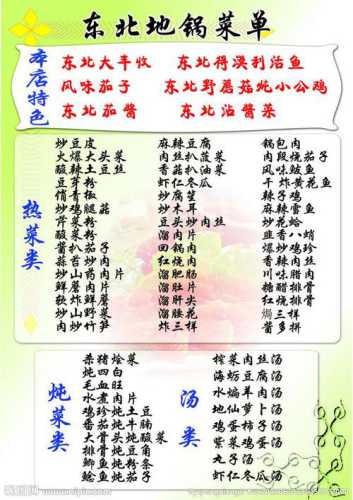 东北地锅菜单
本店特色
东北大丰收 东北得漠利活鱼
风味茄子 东北野蘑菇炖小公鸡
东北茄酱 东北沾酱菜
热菜类
炒豆皮
火爆大头菜
酸辣土豆丝
豆芽粉
俏青椒
炒鸡腿菇
芹菜粉
酸菜粉
酱扒茄子
蒜苔炒肉
炒山药肉片
鲜蘑炒肉
软炸鲜蘑
炒山野菜
肉炒竹笋
麻辣豆腐
肉丝扒菠菜
香菇扒油菜
虾仁冬瓜
炒腐笙
炒木耳
豆头炒肉丝
溜肉片
回锅肉
红烧肉
溜肥肠
溜肚片
溜肝尖
溜腰花
炸三样
锅包肉
肉段烧茄子
风味鲅鱼
干炸黄花鱼
辣子鸡
麻辣雷鱼
炒花蛤
韭香八蛸
爆炒鸡珍
香辣肉丝
川味腊肉
糖醋排骨
红烧排骨
焗三样
酱多拼
炖菜类
杀猪烩菜
炖四白
毛血旺
水煮肉片
鸡珍炖土豆
番茄炖牛腩
大骨头炖酸菜
排骨炖豆角
鲫鱼炖粉条
鲶鱼炖茄子
汤类
榨菜肉丝汤
海蛎豆腐汤
水煸羊肉汤
地仙萝卜汤
鸡蛋柿子汤
紫菜鸡蛋汤
丸子汤
虾仁冬瓜汤